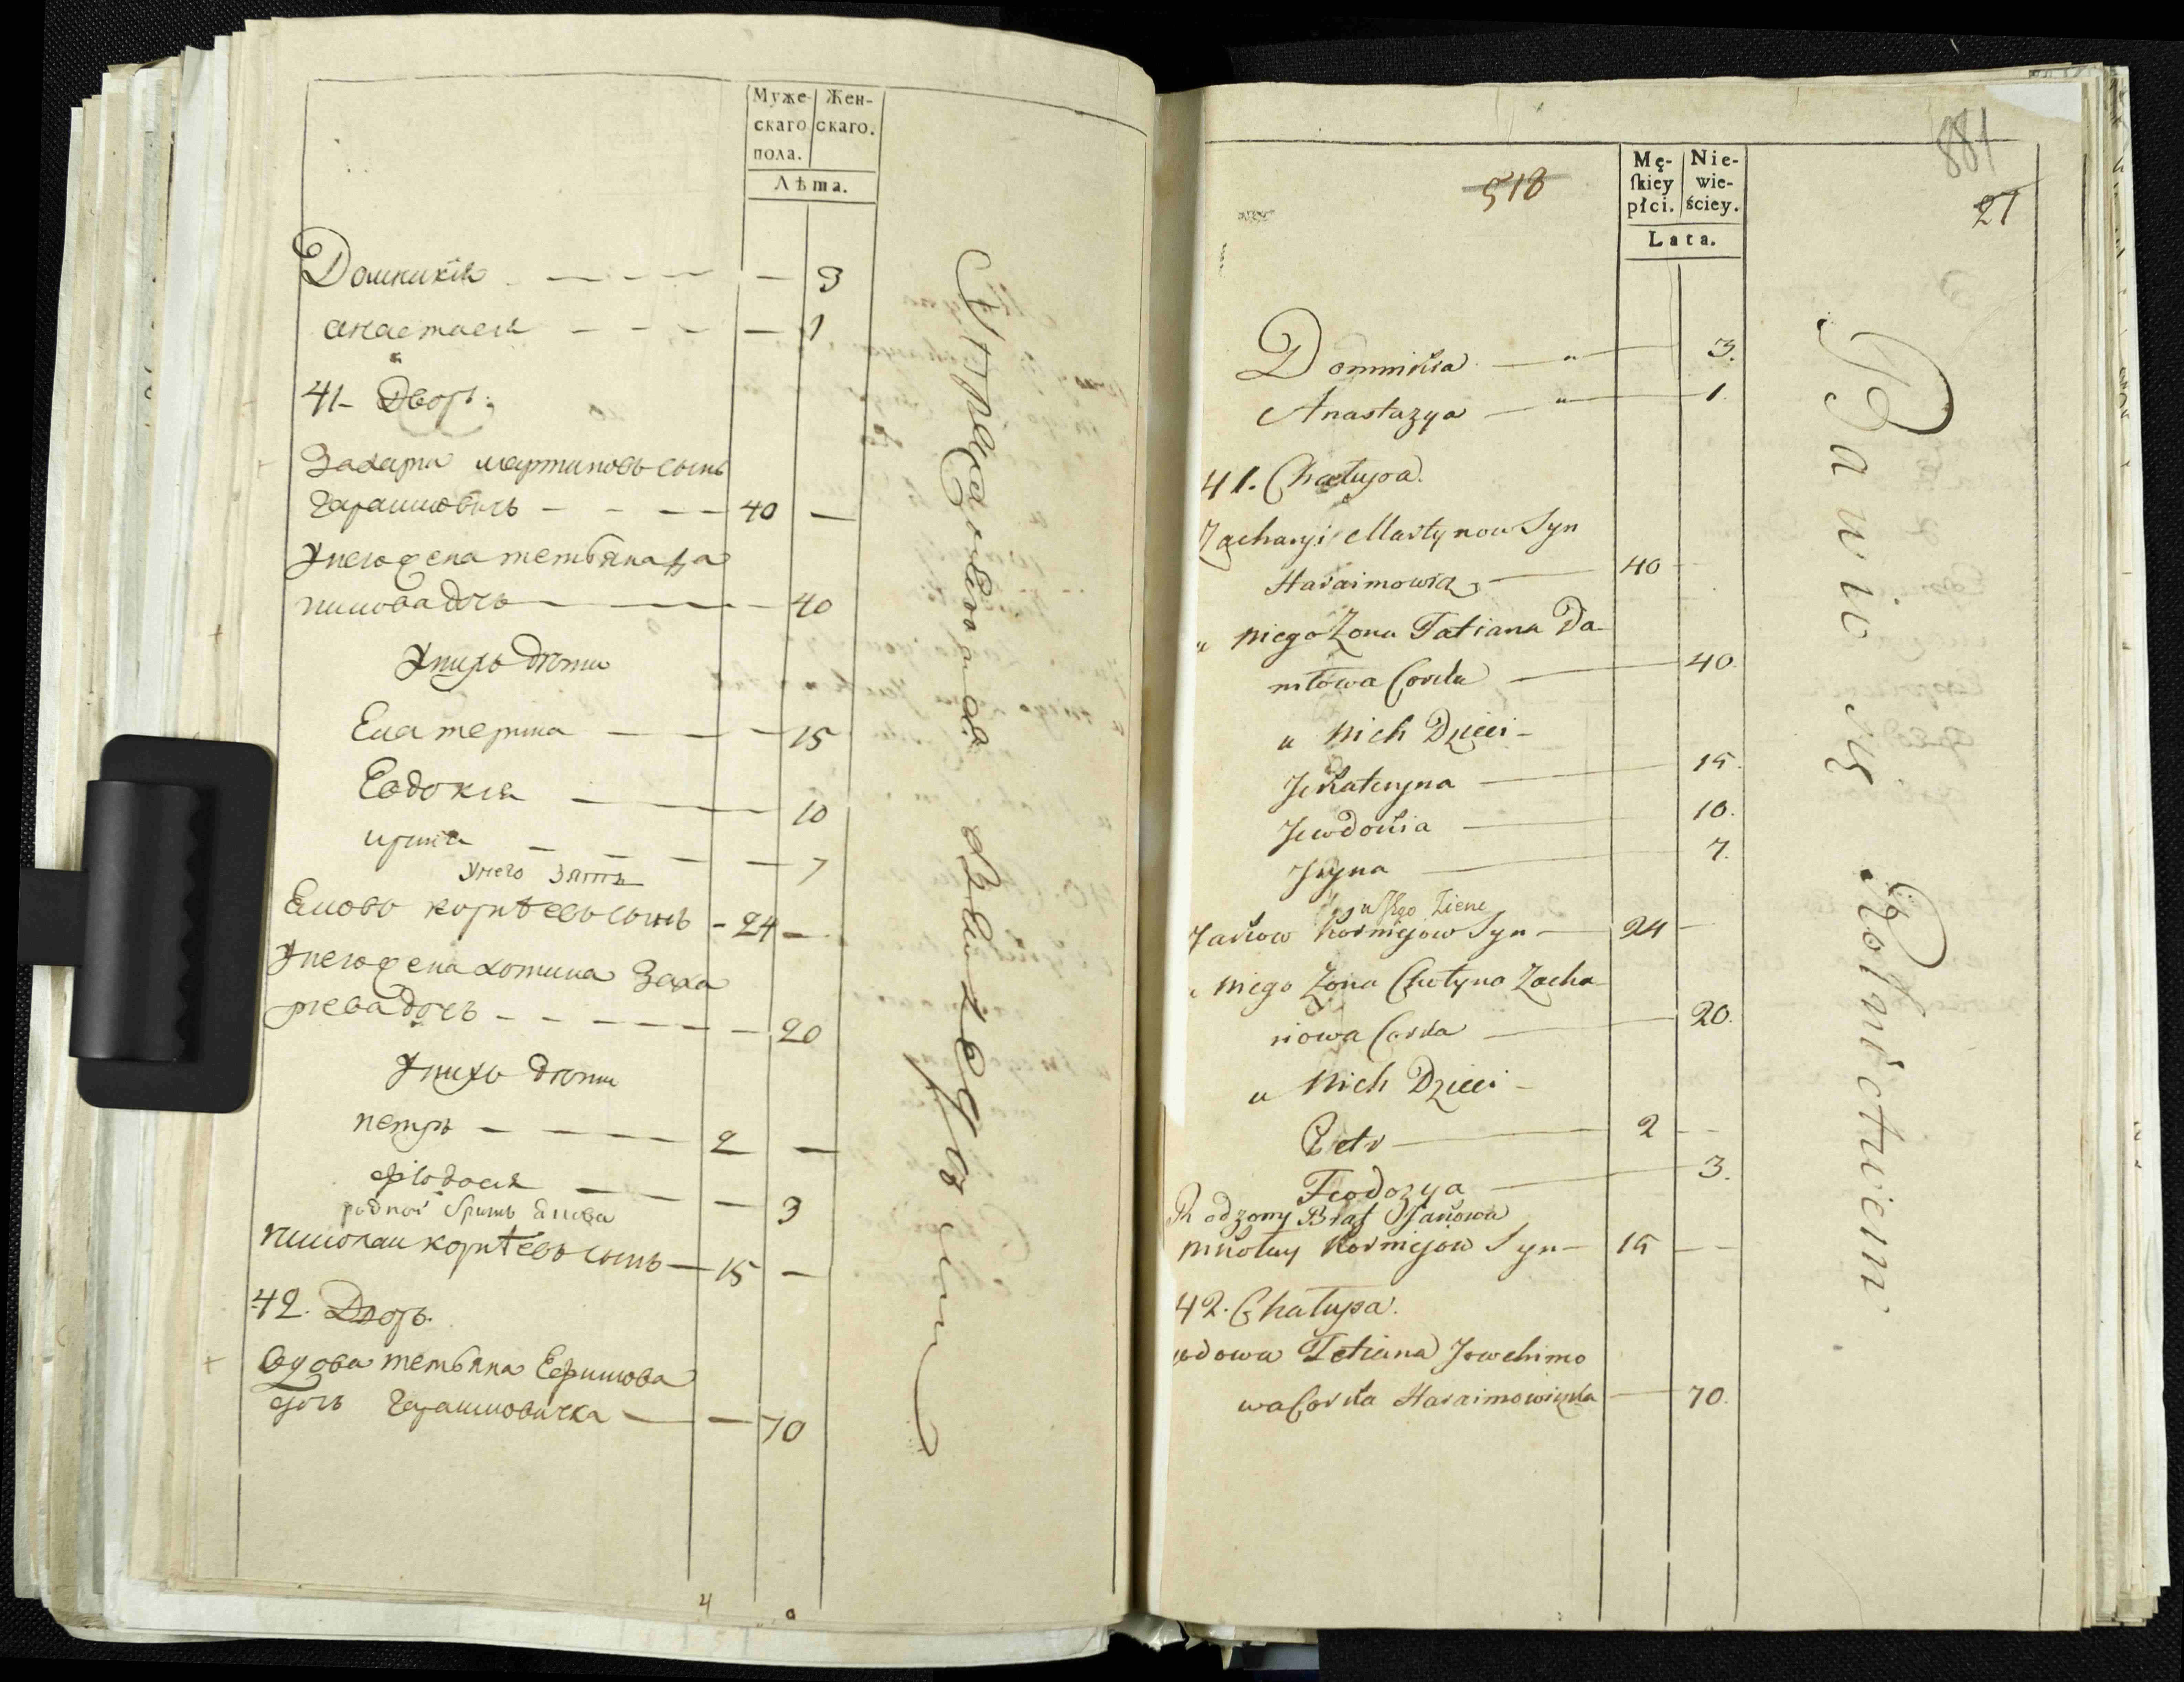 Муже-
скаго
пола.
Жен-
скаго.
Лѣта.
Домникія — — — — 3
анастасія — — — — 1
41- Дворъ.
Захарія мартиновъ сынъ
Гараимовичъ — — — — 40 —
Унего жена тетьяна да
ниловадочь — — — — 40
Унихъ дѣти
Екатерина — — — 15
Евдокія — — — 10
ирина — — — — 7
Унего зять
Яковъ корнѣевъ сынъ - 24 —
Унего жена хотина Заха
ріева дочь — — — — 20
Унихъ дѣти
петръ — — — — 2 —
Ѳіодосія — — — — 3
родной братъ якова
николаи корнѣевъ сынъ — 15 —
42. Дворъ.
Вдова тетьяна Ефимова
дочь Гараимовичка — — 70
Упражненіе въ
земледѣліи
4 0
518
881
27
Mę-
ſkiey
płci.
Nie-
wie-
ściey.
Lata.
Dominika — " — 3.
Anastazya — " — 1.
41. Chałupa.
Zacharyi Martynow Syn
Haraimowicz — 40 —
u niego Zona Tatiana Da
niłowa Corka — 40.
u Nich Dzieci -
Jekateryna — 15.
Jewdokia — 10.
Jryna — 7.
u Jego Ziene
Jakow Korniejow Syn — 24 —
u niego Zona Chotyna Zacha
riowa Corka — 20.
u Nich Dzieci -
Petr — 2 —
Feodozya — 3.
Rodzony Brat Jakowa
Mikołay Korniejow Syn — 15 —
42. Chałupa.
wdowa Tetiana Jowchimo
wa Corka Haraimowiczka — 70.
Bawią się Rolnictwem